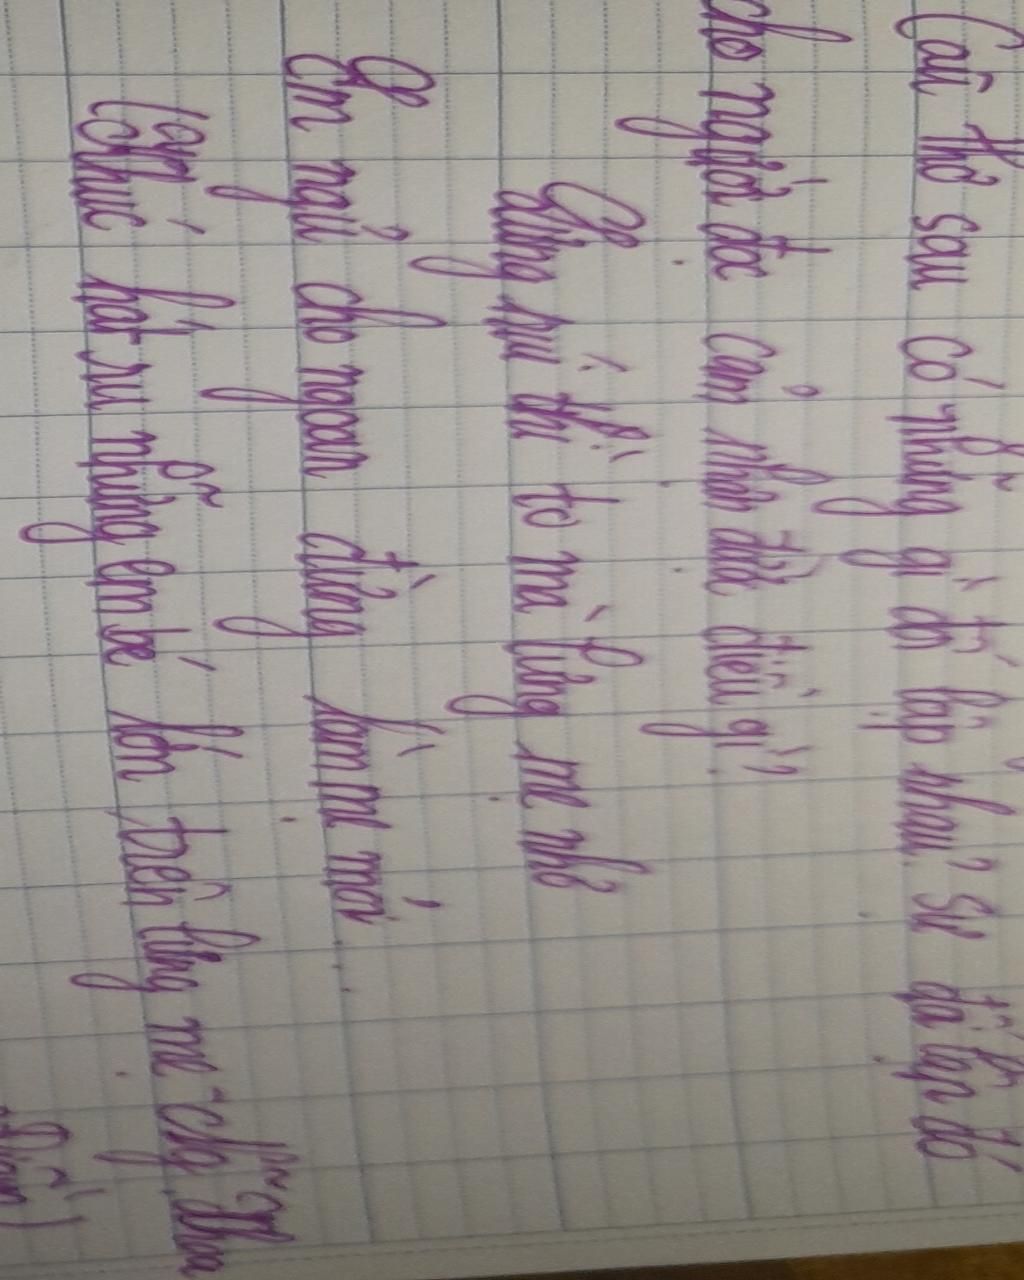 Câu thơ sau có những gì đối lập nhau? Sự đối lập đó
cho người đọc cảm nhận được điều gì?
Lưng núi thì to mà lưng mẹ nhỏ
Em ngủ cho ngoan đừng làm mẹ mỏi...
(Khúc hát ru những em bé lớn trên lưng mẹ - Ng. Khoa
Điềm)